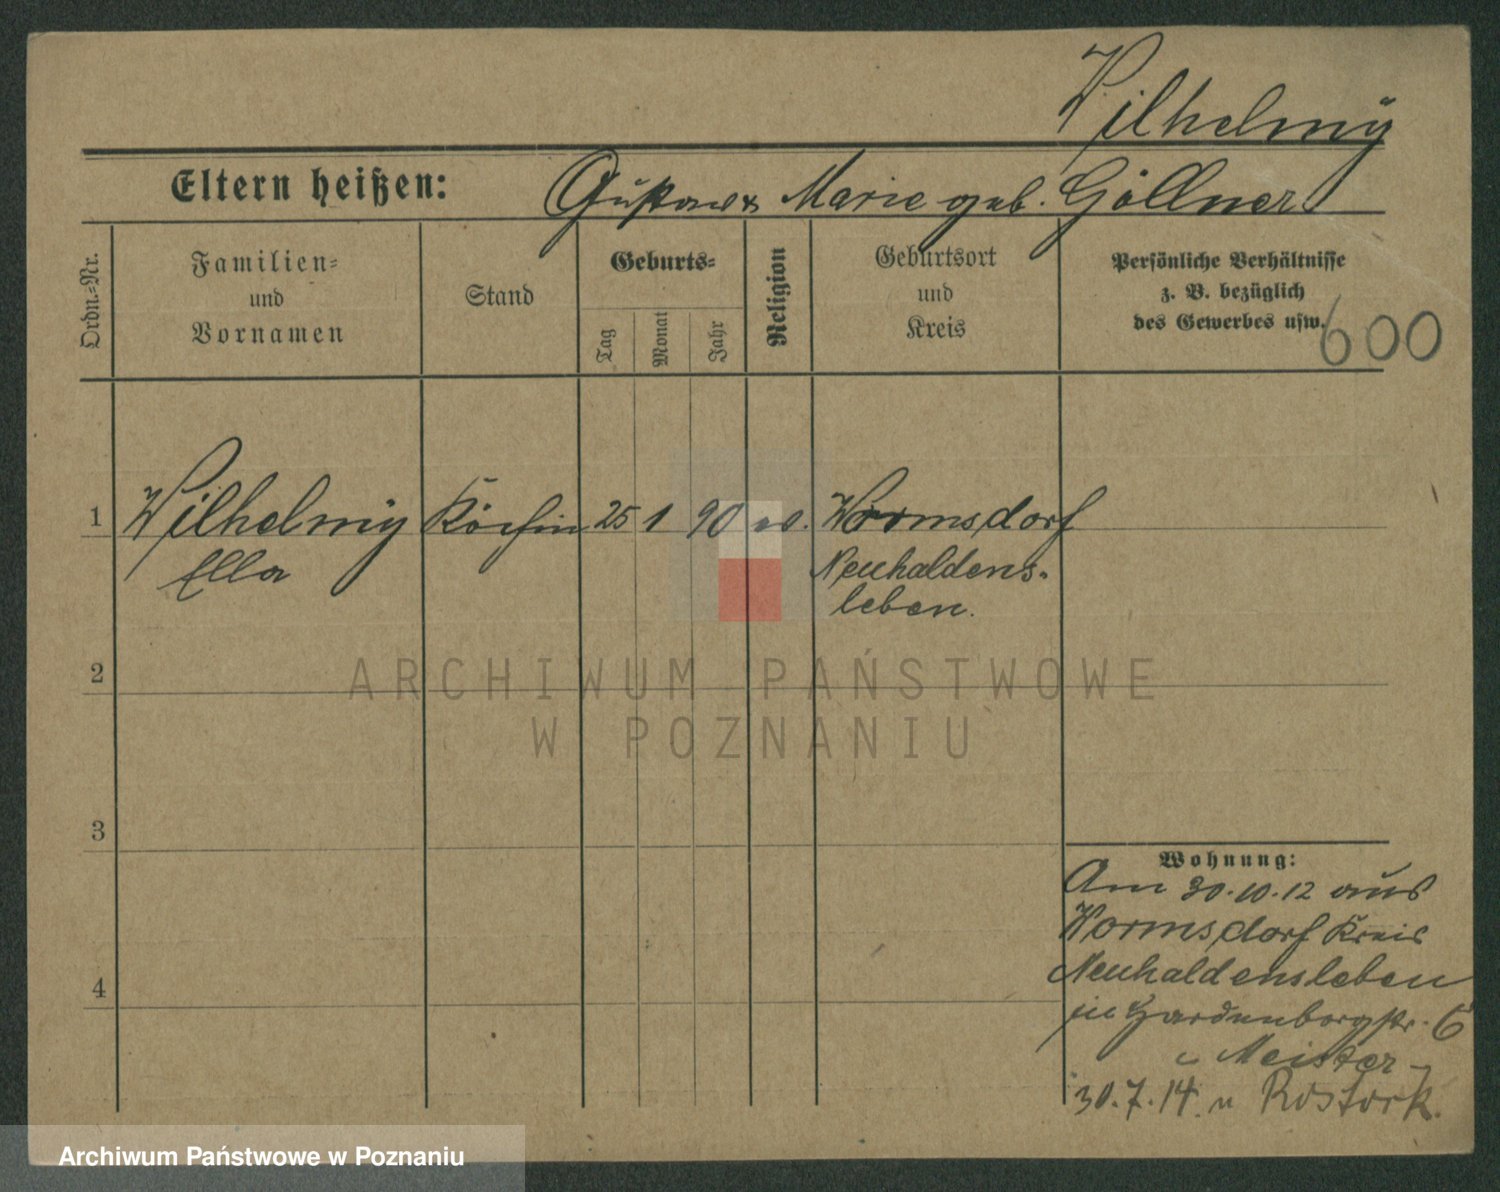 Wilhelmy
Eltern heißen: Gustav & Marie geb. Göllner
Ordn.-Nr.
Familien-
und
Vornamen
Stand
Geburts-
Tag
Monat
Jahr
Religion
Geburtsort
und
Kreis
Persönliche Verhältnisse
z. B. bezüglich
des Gewerbes usw.
600
1 Wilhelmy Köchin 25 1 90 ev. Wormsdorf
Ella Neuhaldens-
leben.
2
3
4
Wohnung:
Am 30.10.12 aus
Wormsdorf Kreis
Neuhaldensleben
in Hardenbergstr. 6
Meister
30.7.14. n Rostock.
ARCHIWUM PAŃSTWOWE
W POZNANIU
Archiwum Państwowe w Poznaniu